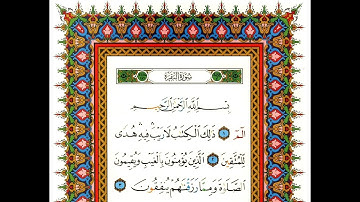 سورة البقرة
بسم الله الرحمن الرحيم
الم ١ ذلك الكتب لا ريب فيه هدى
للمتقين ٢ الذين يؤمنون بالغيب ويقيمون
الصلوة ومما رزقنهم ينفقون ٣